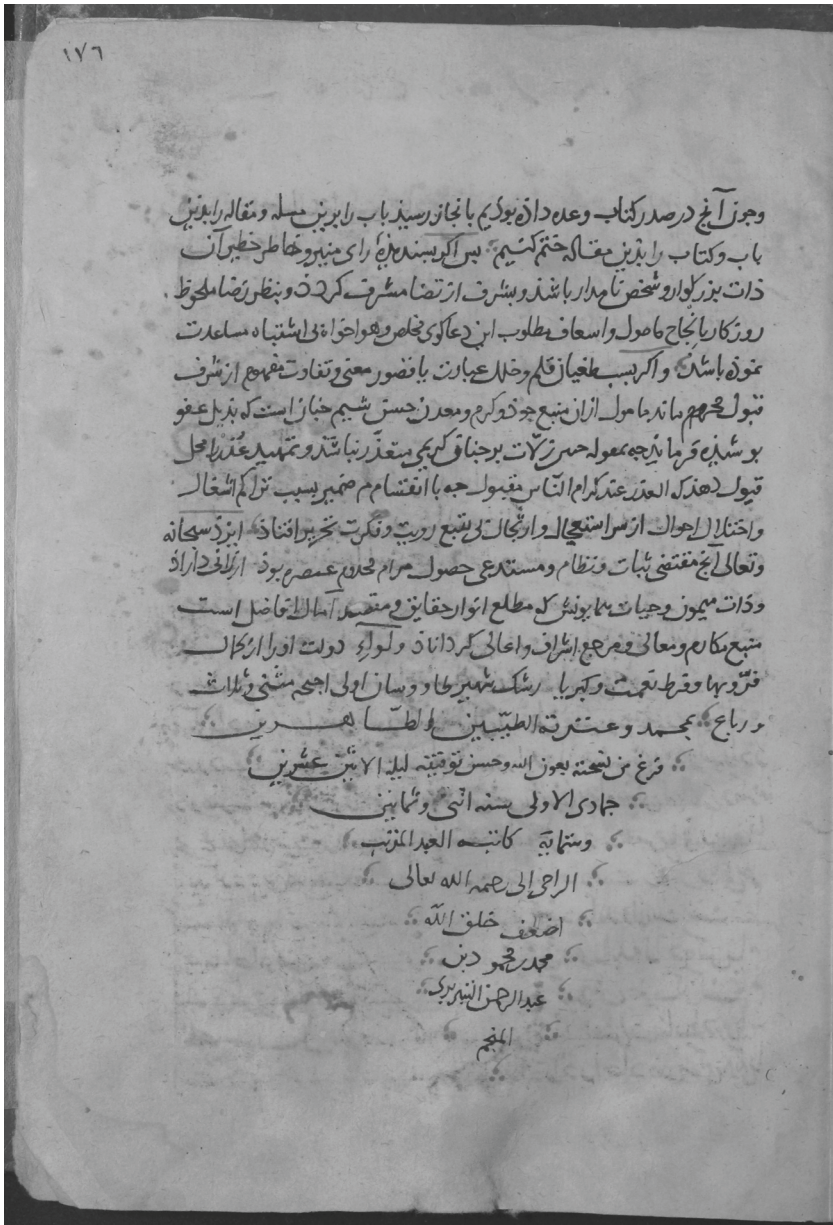 ١٧٦
وجون آنج در صدر کتاب وعده داذه بوذیم بانجاز رسیذ باب را برین مسله و مقاله را بذین
باب و کتاب را بذین مقاله ختم کنیم بس اکر بسندیذهٔ رای منیر و خاطر خطیر آن
ذات بزرکوار و شخص نامدار باشذ و بشرف ارتضا مشرف کردذ و بنظر رضا ملحوظ
روزکار بانجاح مامول و اسعاف مطلوب این دعاکوی مخلص و هواخواه بی اشتباه مساعدت
نموذه باشذ و اکر بسبب طغیان قلم و خلل عبارت یا قصور معنی و تفاوت مفهوم از شرف
قبول محروم ماند مامول ازان منبع جوذ و کرم و معدن حسن شیم جنان است که بذیل عفو
بوشیذه فرمایذ جه مقوله زلات بر جناق کریمی متعذر نباشذ و تمهید عذر را محل
قبول دهذ که العذر عند کرام الناس مقبول جه با انقسام ضمیر بسبب تراکم اشغال
و اختلال احوال از سر استعجال و ارتجال بی تتبع رویت و فکرت تحریر افتاذ ایزذ سبحانه
وتعالی آنج مقتضی ثبات و نظام و مستدعی حصول مرام مخدوم بوذ ارزانی داراذ
و ذات میمون و حیات همایونش که مطلع انوار حقایق و مقصد آمال افاضل است
منبع مکارم و معالی و مرجع اشراف و اعالی کرداناذ و لواء دولت او را از کمال
فر و بها و فرط نعمت و کبریا رشک شهپر طاووسان اولی اجنحه مثنی و ثلاث
و رباع بمحمد وعترته الطیبین الطاهرین
فرغ من نسخته بعون الله وحسن توفیقه لیله الاثنین عشرین
جمادی الاولی سنه اثنی وثمانین
وستمایة کاتبه العبد المذنب
الراجی الی رحمه الله تعالی
اضعف خلق الله
محمد بن محمود بن
عبد الرحمن التبریزی
المنجم